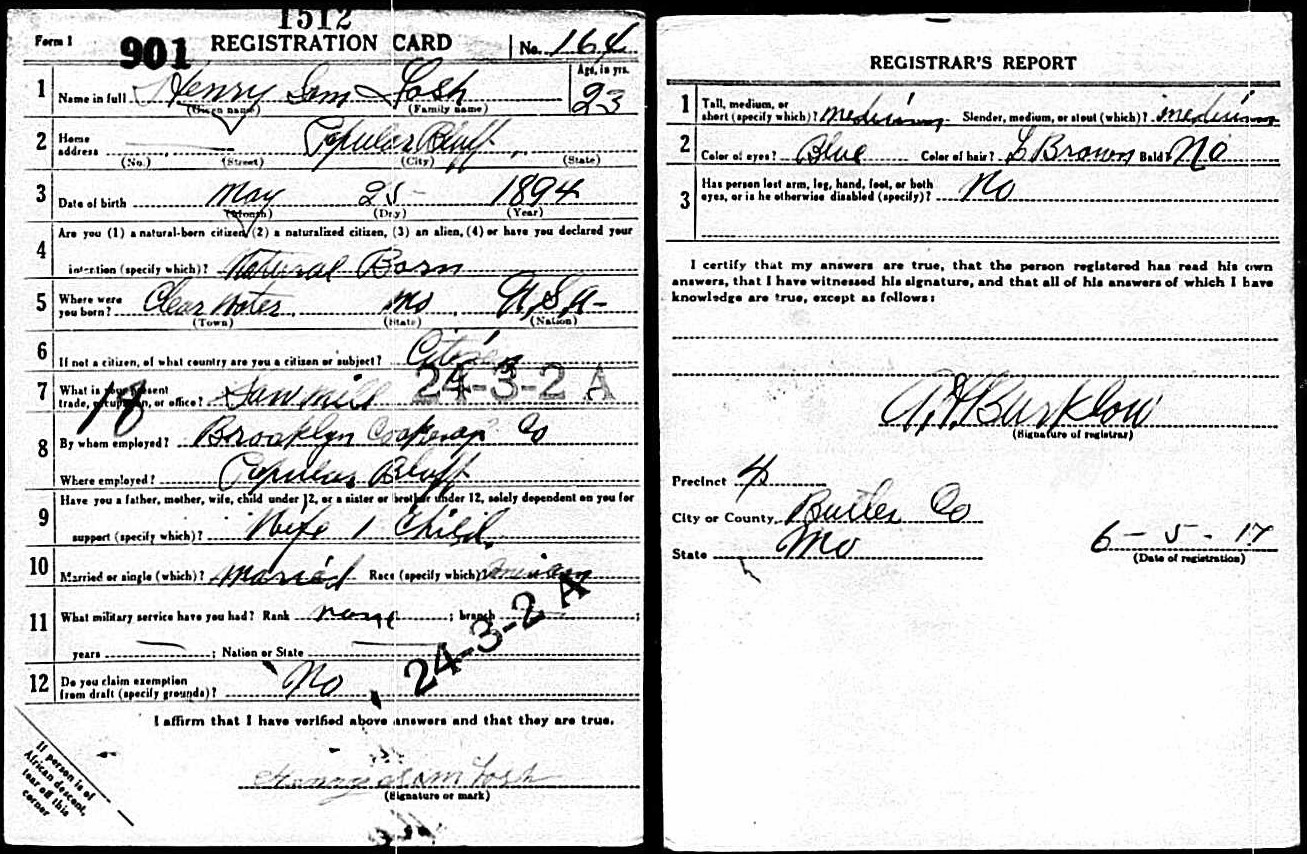 1512
Form 1 901 REGISTRATION CARD No. 164
1 Name in full Henry Sam Losh Age, in yrs. 23
(Given name) (Family name)
2 Home address Popular Bluff
(No.) (Street) (City) (State)
3 Date of birth May 25 1894
(Month) (Day) (Year)
4 Are you (1) a natural-born citizen, (2) a naturalized citizen, (3) an alien, (4) or have you declared your
intention (specify which)? Natural Born
5 Where were you born? Clear Water, Mo U.S.A-
(Town) (State) (Nation)
6 If not a citizen, of what country are you a citizen or subject? Citizen
7 What is your present trade, occupation, or office? Saw Mill 24-3-2 A
18
8 By whom employed? Brooklyn Cooperage Co
Where employed? Popular Bluff
9 Have you a father, mother, wife, child under 12, or a sister or brother under 12, solely dependent on you for
support (specify which)? Wife 1 Child
10 Married or single (which)? Married Race (specify which)
11 What military service have you had? Rank none ; branch ;
years ; Nation or State
24-3-2 A
12 Do you claim exemption from draft (specify grounds)? No
I affirm that I have verified above answers and that they are true.
Henry Sam Losh
(Signature or mark)
If person is of
African descent,
tear off this
corner
REGISTRAR'S REPORT
1 Tall, medium, or short (specify which)? Medium Slender, medium, or stout (which)? Medium
2 Color of eyes? Blue Color of hair? L Brown Bald? No
3 Has person lost arm, leg, hand, foot, or both eyes, or is he otherwise disabled (specify)? No
I certify that my answers are true, that the person registered has read his own
answers, that I have witnessed his signature, and that all of his answers of which I have
knowledge are true, except as follows:
A.H. Burklow
(Signature of registrar)
Precinct 4
City or County Butler Co
State Mo
6-5-17
(Date of registration)